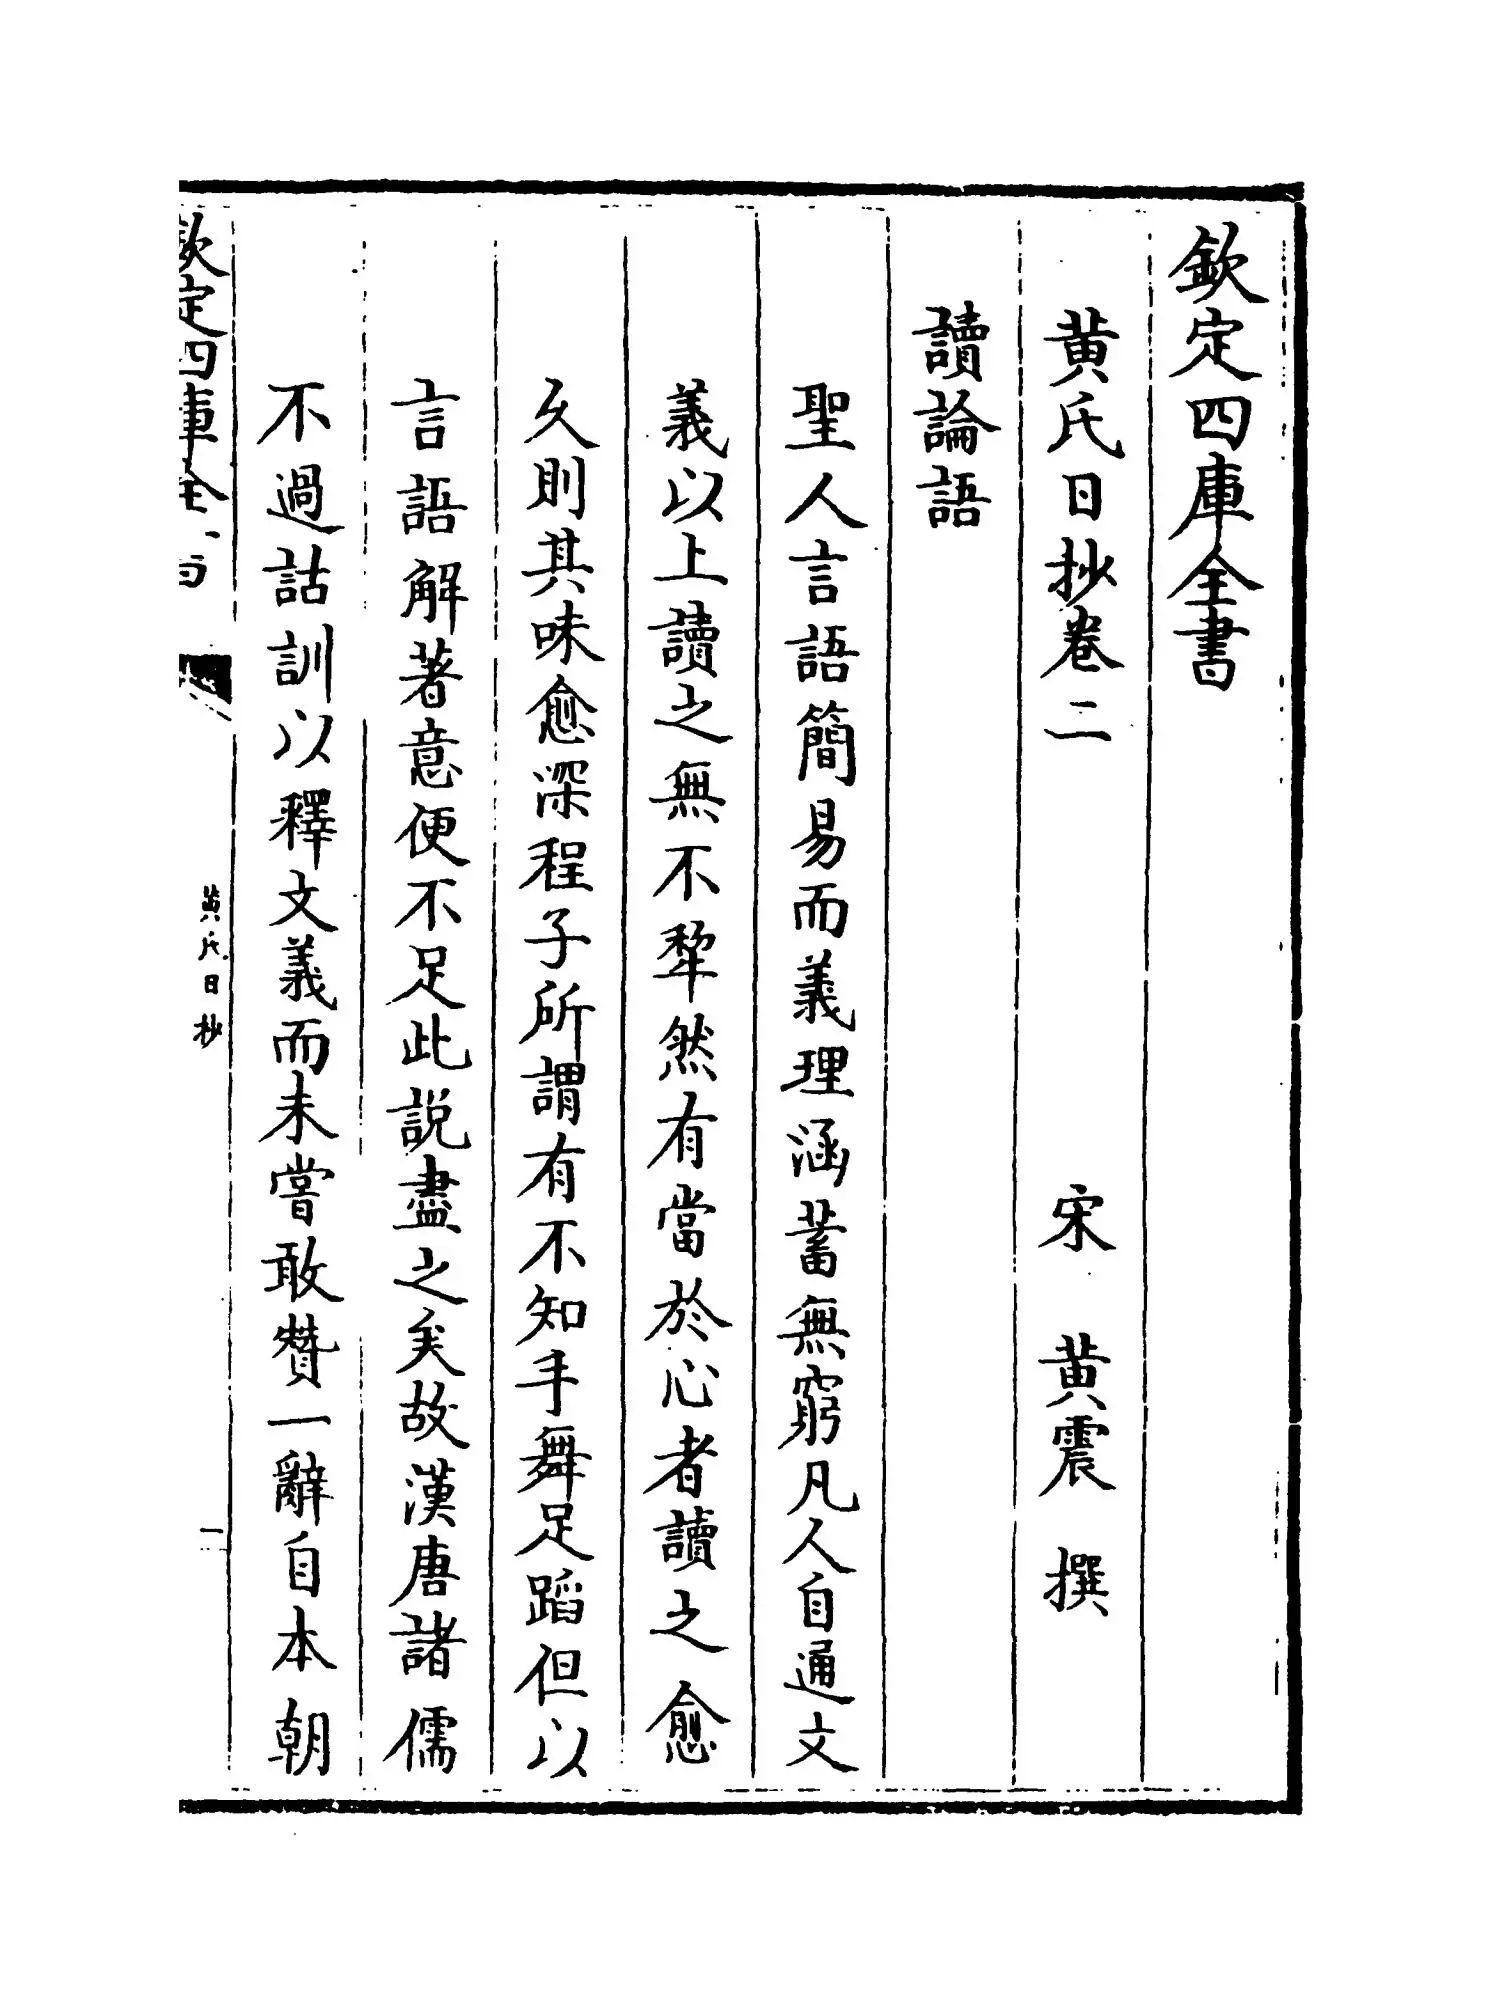 欽定四庫全書
黄氏日抄卷二
宋 黄震 撰
讀論語
聖人言語簡易而義理涵蓄無窮凡人自通文
義以上讀之無不犂然有當於心者讀之愈
久則其味愈深程子所謂有不知手舞足蹈但以
言語解著意便不足此說盡之矣故漢唐諸儒
不過詁訓以釋文義而未嘗敢贊一辭自本朝
欽定四庫全書
黄氏日抄
一